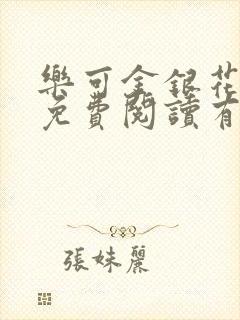 樂可金銀花
免費閱讀有
張妹麗